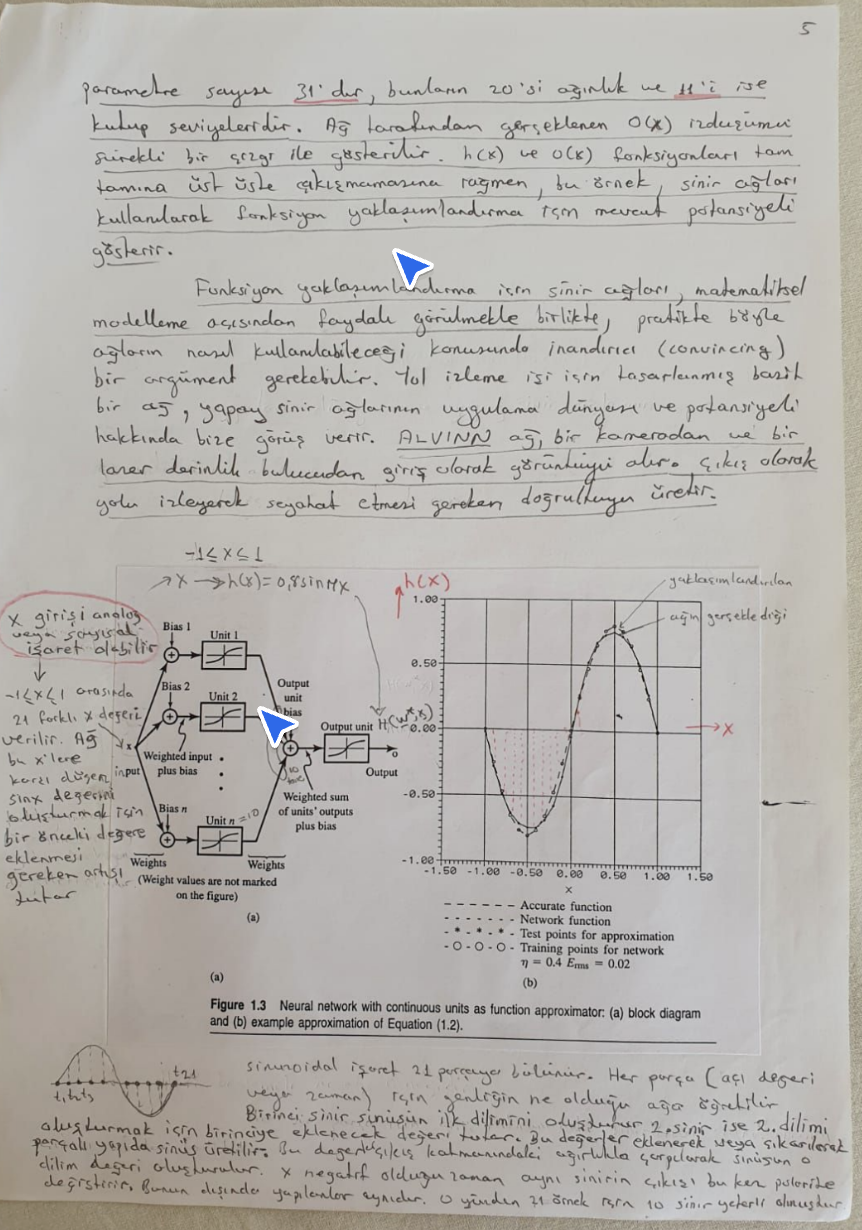 5
parametre sayısı 31'dir, bunların 20'si ağırlık ve 11'i ise
kutup seviyeleridir. Ağ tarafından gerçeklenen O(x) izdüşümü
sürekli bir çizgi ile gösterilir. h(x) ve O(x) fonksiyonları tam
tamına üst üste çakışmamasına rağmen, bu örnek, sinir ağları
kullanılarak fonksiyon yaklaşımlandırma için mevcut potansiyeli
gösterir.
Fonksiyon yaklaşımlandırma için sinir ağları, matematiksel
modelleme açısından faydalı görülmekle birlikte, pratikte böyle
ağların nasıl kullanılabileceği konusunda inandırıcı (convincing)
bir argüment gerekebilir. Yol izleme işi için tasarlanmış basit
bir ağ, yapay sinir ağlarının uygulama dünyası ve potansiyeli
hakkında bize görüş verir. ALVINN ağı, bir kameradan ve bir
lazer derinlik bulucudan giriş olarak görüntüyü alır. Çıkış olarak
yolu izleyerek seyahat etmesi gereken doğrultuyu üretir.
-1≤x≤1
x → h(x)=0,8sinπx
x girişi analog
veya sayısal
işaret olabilir
-1≤x≤1 arasında
21 farklı x değeri
verilir. Ağ
bu x'lere
karşı düşen
sinx değerini
oluşturmak için
bir önceki değere
eklenmesi
gereken artışı
tutar
Bias 1
Unit 1
Bias 2
Unit 2
Output
unit
bias
Output unit
x
input
Weighted input
plus bias
o
Output
Weighted sum
of units' outputs
plus bias
Bias n
Unit n =10
Weights
Weights
(Weight values are not marked
on the figure)
(a)
(a)
h(x)
yaklaşımlandırılan
ağın gerçeklediği
H(w*,x)
1.00
0.50
0.00
-0.50
-1.00
x
-1.50 -1.00 -0.50 0.00 0.50 1.00 1.50
x
Accurate function
Network function
Test points for approximation
Training points for network
η = 0.4 Erms = 0.02
(b)
Figure 1.3 Neural network with continuous units as function approximator: (a) block diagram
and (b) example approximation of Equation (1.2).
t1 t2 t3
t21
sinüzoidal işaret 21 parçaya bölünür. Her parça (açı değeri
veya zaman) için genliğin ne olduğu ağa öğretilir
Birinci sinir sinüsün ilk dilimini oluşturur 2. sinir ise 2. dilimi
oluşturmak için birinciye eklenecek değeri tutar. Bu değerler eklenerek veya çıkarılarak
parçalı yapıda sinüs üretilir. Bu değer çıkış katmanındaki ağırlıkla çarpılarak sinüsün o
dilim değeri oluşturulur. x negatif olduğu zaman aynı sinirin çıkışı bu kez polarite
değiştirir. Bunun dışında yapılanlar aynıdır. O yüzden 21 örnek için 10 sinir yeterli olmuştur